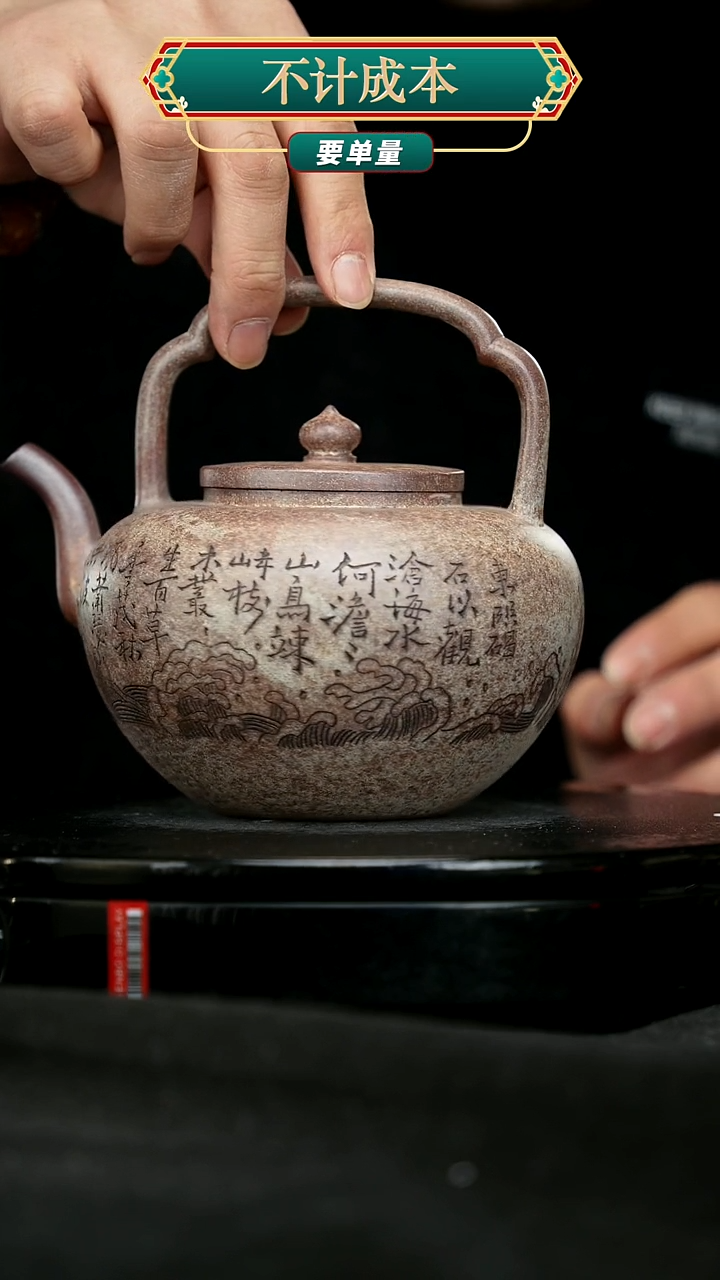 不计成本
要单量
東臨碣
石以觀
滄海水
何澹々
山島竦
峙
木叢
生百草
茂秋
蕭